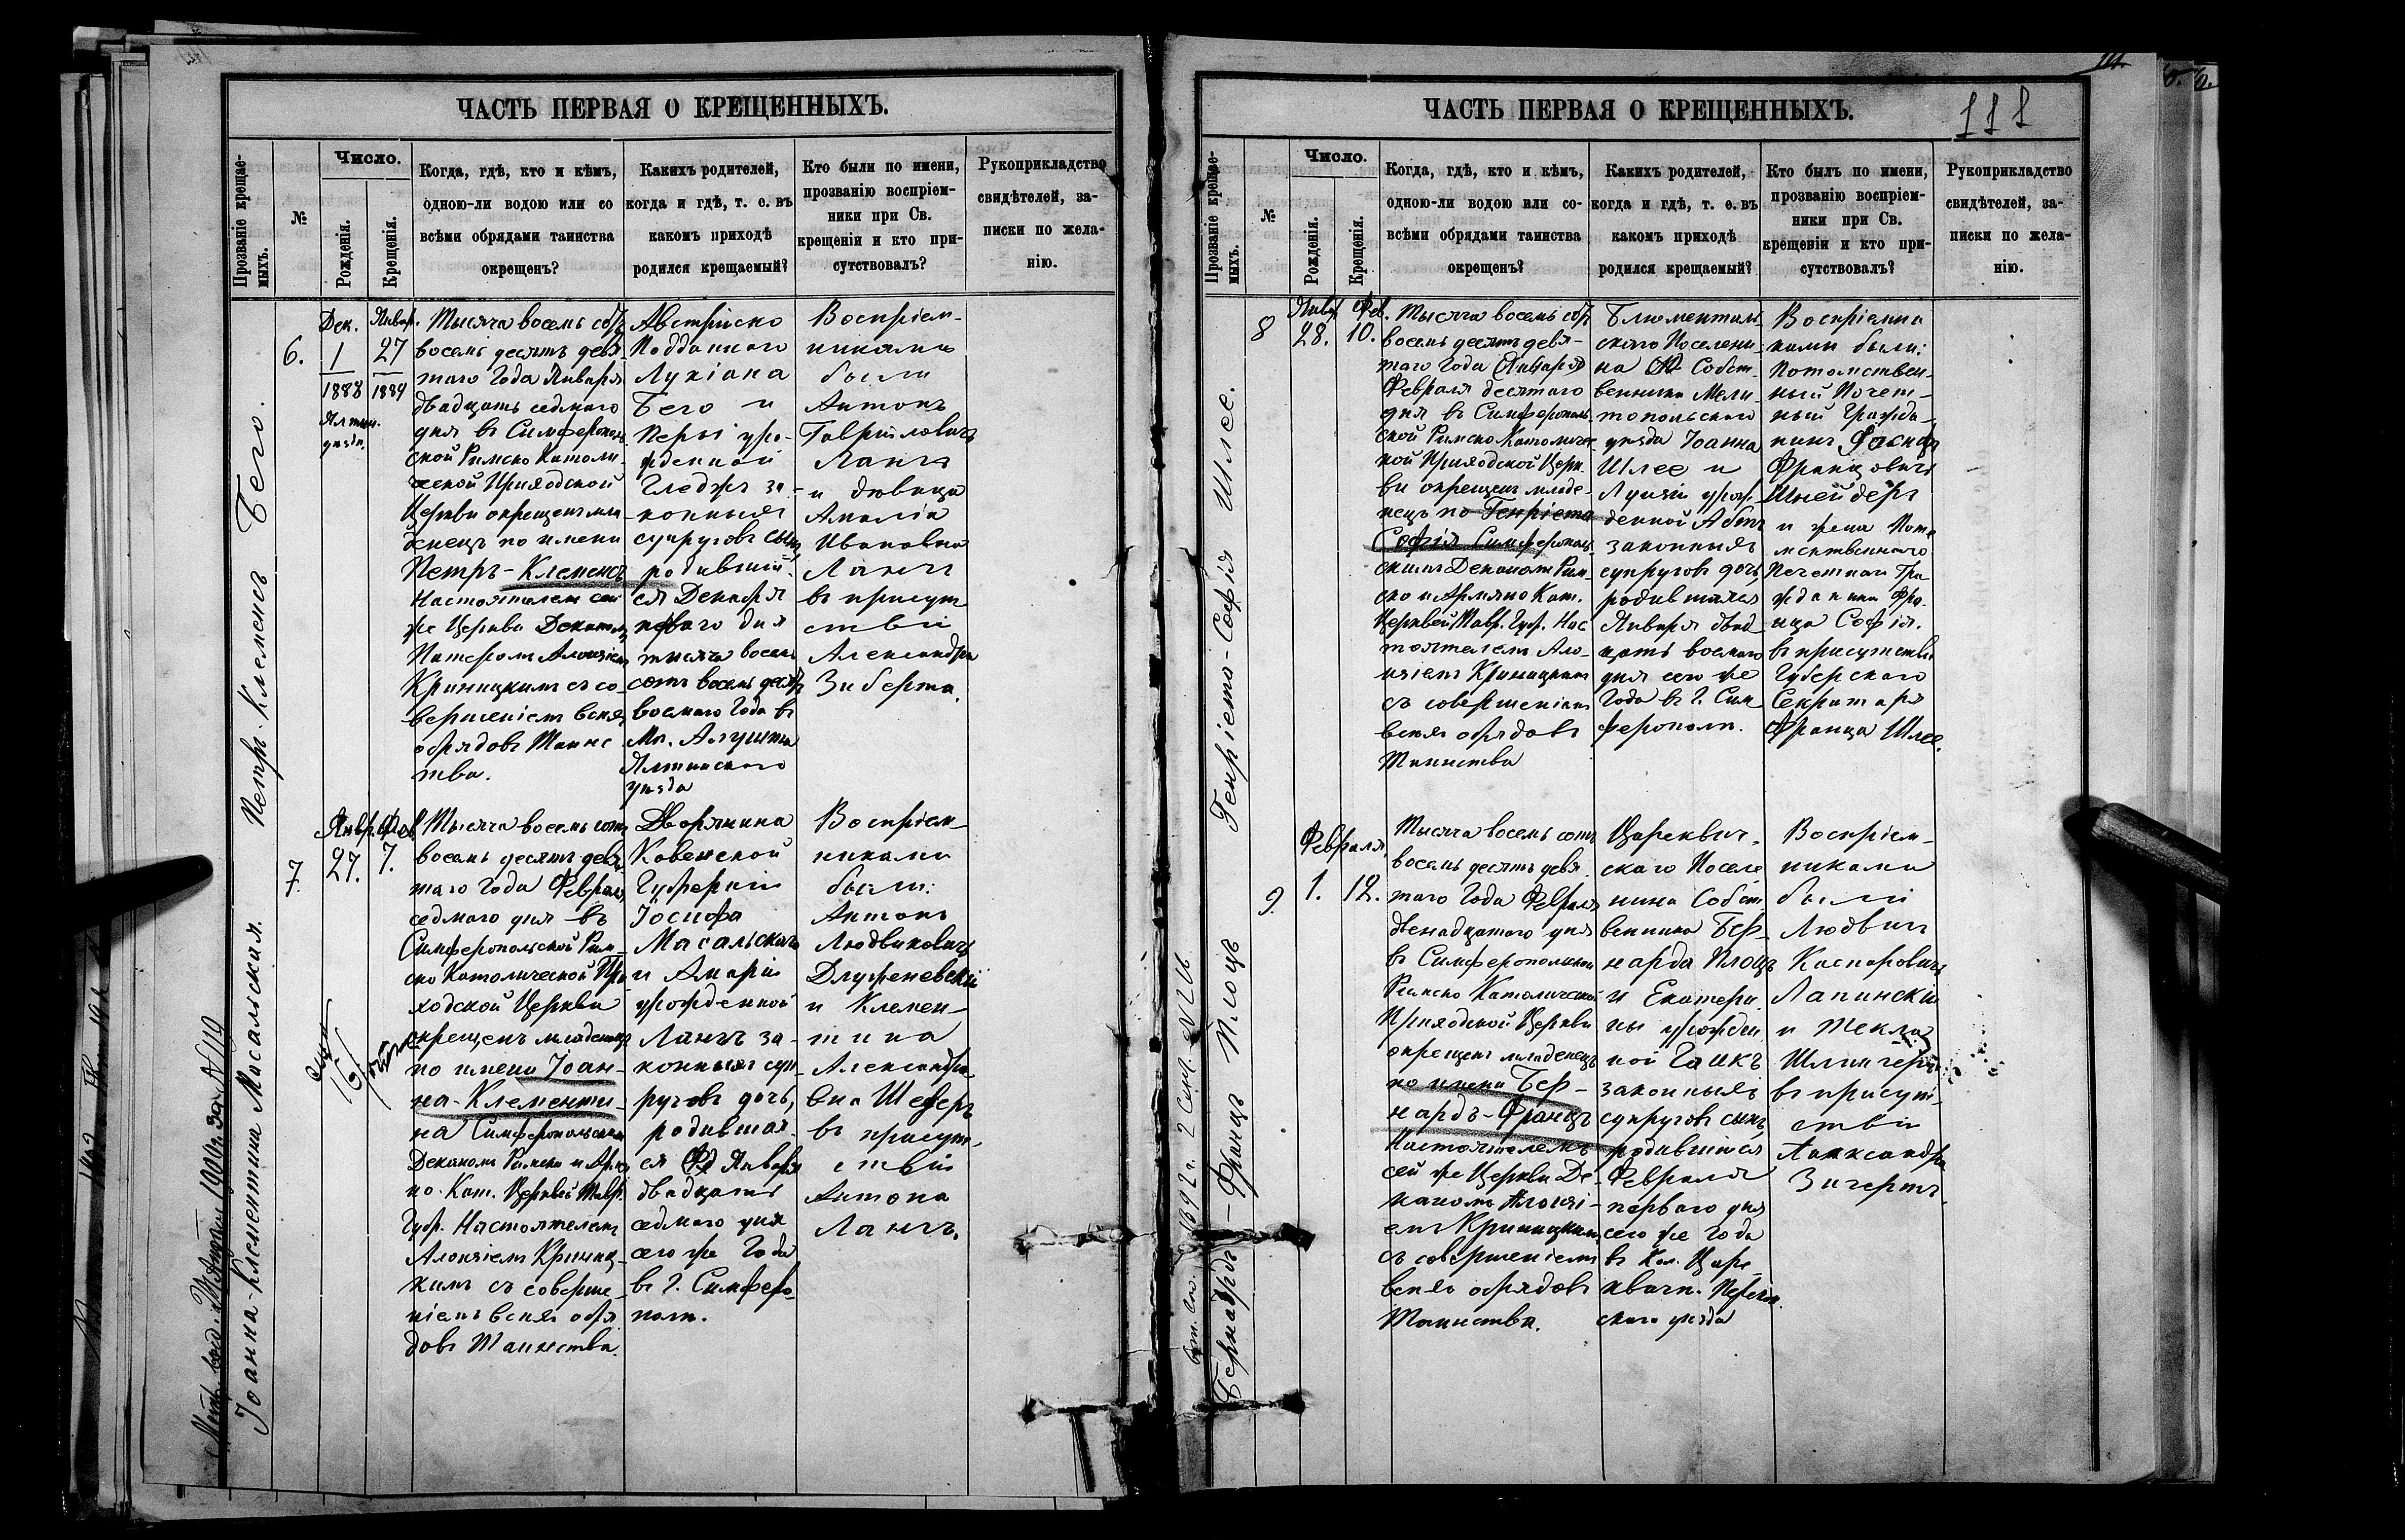 ЧАСТЬ ПЕРВАЯ О КРЕЩЕННЫХЪ.
Прозваніе крещае-
мыхъ.
№
Число.
Рожденія.
Крещенія.
Когда, гдѣ, кто и кѣмъ,
одною-ли водою или со
всѣми обрядами таинства
окрещенъ?
Какихъ родителей,
когда и гдѣ, т. е. въ
какомъ приходѣ
родился крещаемый?
Кто были по имени,
прозванію воспріем-
ники при Св.
крещеніи и кто при-
сутствовалъ?
Рукоприкладство
свидѣтелей, за-
писки по жела-
нію.
Петръ-Клеменсъ Бего.
6.
Дек.
1
1888
Январ.
27
1889
Тысяча восемь сотъ
восемь десятъ девя-
таго Года Января
двадцать седмаго
дня въ Симферополь
ской Римско Католи-
ческой Приходской
Церкви окрещенъ мла-
денецъ по имени
Петръ-Клеменсъ
Настоятелемъ сей
же Церкви Деканомъ
Патеромъ Алоизіемъ
Криницкимъ съ со-
вершеніемъ всѣхъ
обрядовъ Таинс
тва.
Австрійско
Подданнаго
Лукіана
Бего и
уро-
жденной
за-
конныхъ
супруговъ сынъ
родившій-
ся Декабря
перваго дня
тысяча восемь
сотъ восемь десятъ
восмаго Года въ
М. Алушта
Ялтинскаго
уѣзда
Воспріем-
никами
были
Антонъ
Гавриловичъ
Лангъ
и дѣвица
Амалія
Ивановна
Лангъ
въ присут
ствіи
Александра
Зиберта.
Іоанна-Клементина Масальская.
7.
Янв.
27.
Фев.
7.
Тысяча восемь сотъ
восемь десятъ девя
таго Года Февраля
седмаго дня въ
Симферопольской Рим-
ско Католической При
ходской Церкви
окрещенъ младенецъ
по имени Іоан-
на-Клементи-
на Симферопольскимъ
Деканомъ Римско и Армя
но-Кат. Церквей Тавр.
Губ. Настоятелемъ
Алоизіемъ Криниц-
кимъ съ соверше-
ніемъ всѣхъ обря
довъ Таинства.
Дворянина
Ковенской
Губерніи
Іосифа
Масальскаго
и Маріи
урожденной
Лангъ за-
конныхъ суп-
руговъ дочь,
родившая-
ся Января
двадцать
седмаго дня
сего же Года
въ г. Симферо-
полѣ.
Воспріем-
никами
были:
Антонъ
Людвиковичъ
Длужневскій
и Клемен-
тина
Александро-
вна Шеферъ
въ присут-
ствіи
Антона
Лангъ.
ЧАСТЬ ПЕРВАЯ О КРЕЩЕННЫХЪ.
111
Прозваніе крещае-
мыхъ.
№
Число.
Рожденія.
Крещенія.
Когда, гдѣ, кто и кѣмъ,
одною-ли водою или со-
всѣми обрядами таинства
окрещенъ?
Какихъ родителей,
когда и гдѣ, т. е. въ
какомъ приходѣ
родился крещаемый?
Кто былъ по имени,
прозванію воспріем-
ники при Св.
крещеніи и кто при-
сутствовалъ?
Рукоприкладство
свидѣтелей, за-
писки по жела-
нію.
Генріета-Софія Шлее.
8
Янв.
28.
Фев.
10.
Тысяча восемь сотъ
восемь десятъ девя-
таго Года Января
Февраля десятаго
дня въ Симферополь
ской Римско Католичес
кой Приходской Церк
ви окрещенъ младе-
нецъ по Генріета
Софія Симферополь
скимъ Деканомъ Рим-
ско и Армяно Кат.
Церквей Тавр. Губ. Нас
тоятелемъ Ало-
изіемъ Криницкимъ
съ совершеніемъ
всѣхъ обрядовъ
Таинства
Блюменталь
скаго Поселени
на Собст-
венника Мели-
топольскаго
уѣзда Іоанна
Шлее и
Луизіи урож
денной Абтъ
законныхъ
супруговъ дочь
родившаяся
Января двад
цать восмаго
дня сего же
Года въ г. Сим
ферополѣ.
Воспріемни
ками были:
Потомствен-
ный Почет-
ный Гражда-
нинъ
Францовичъ
Шнейдеръ
и жена Пото
мственнаго
Почетнаго Гра
жданина Фра-
нца Софія.
въ присутствіи
Губерскаго
Секретаря
Франца Шлее.
Бернардъ-Францъ Плоцъ
9.
Февраля
1.
12.
Тысяча восемь сотъ
восемь десятъ девя
таго Года Февраля
двенадцатаго дня
въ Симферопольской
Римско Католической
Приходской Церкви
окрещенъ младенецъ
по имени Бер-
нардъ-Францъ
Настоятелемъ
сей же Церкви Де-
каномъ Алоизі-
емъ Криницкимъ
съ совершеніемъ
всѣхъ обрядовъ
Таинства.
Цареквич-
скаго Поселе
нина Собст-
венника Бер-
нарда Плоцъ
и Екатери
ны урожден
ной Гаикъ
законныхъ
супруговъ сынъ
родившійся
Февраля
перваго дня
сего же Года
въ Кол. Царе-
квичъ. Переко
скаго уѣзда
Воспріем-
никами
были
Людвигъ
Каспаровичъ
Лапинскій
и Текла
въ присут-
ствіи
Александра